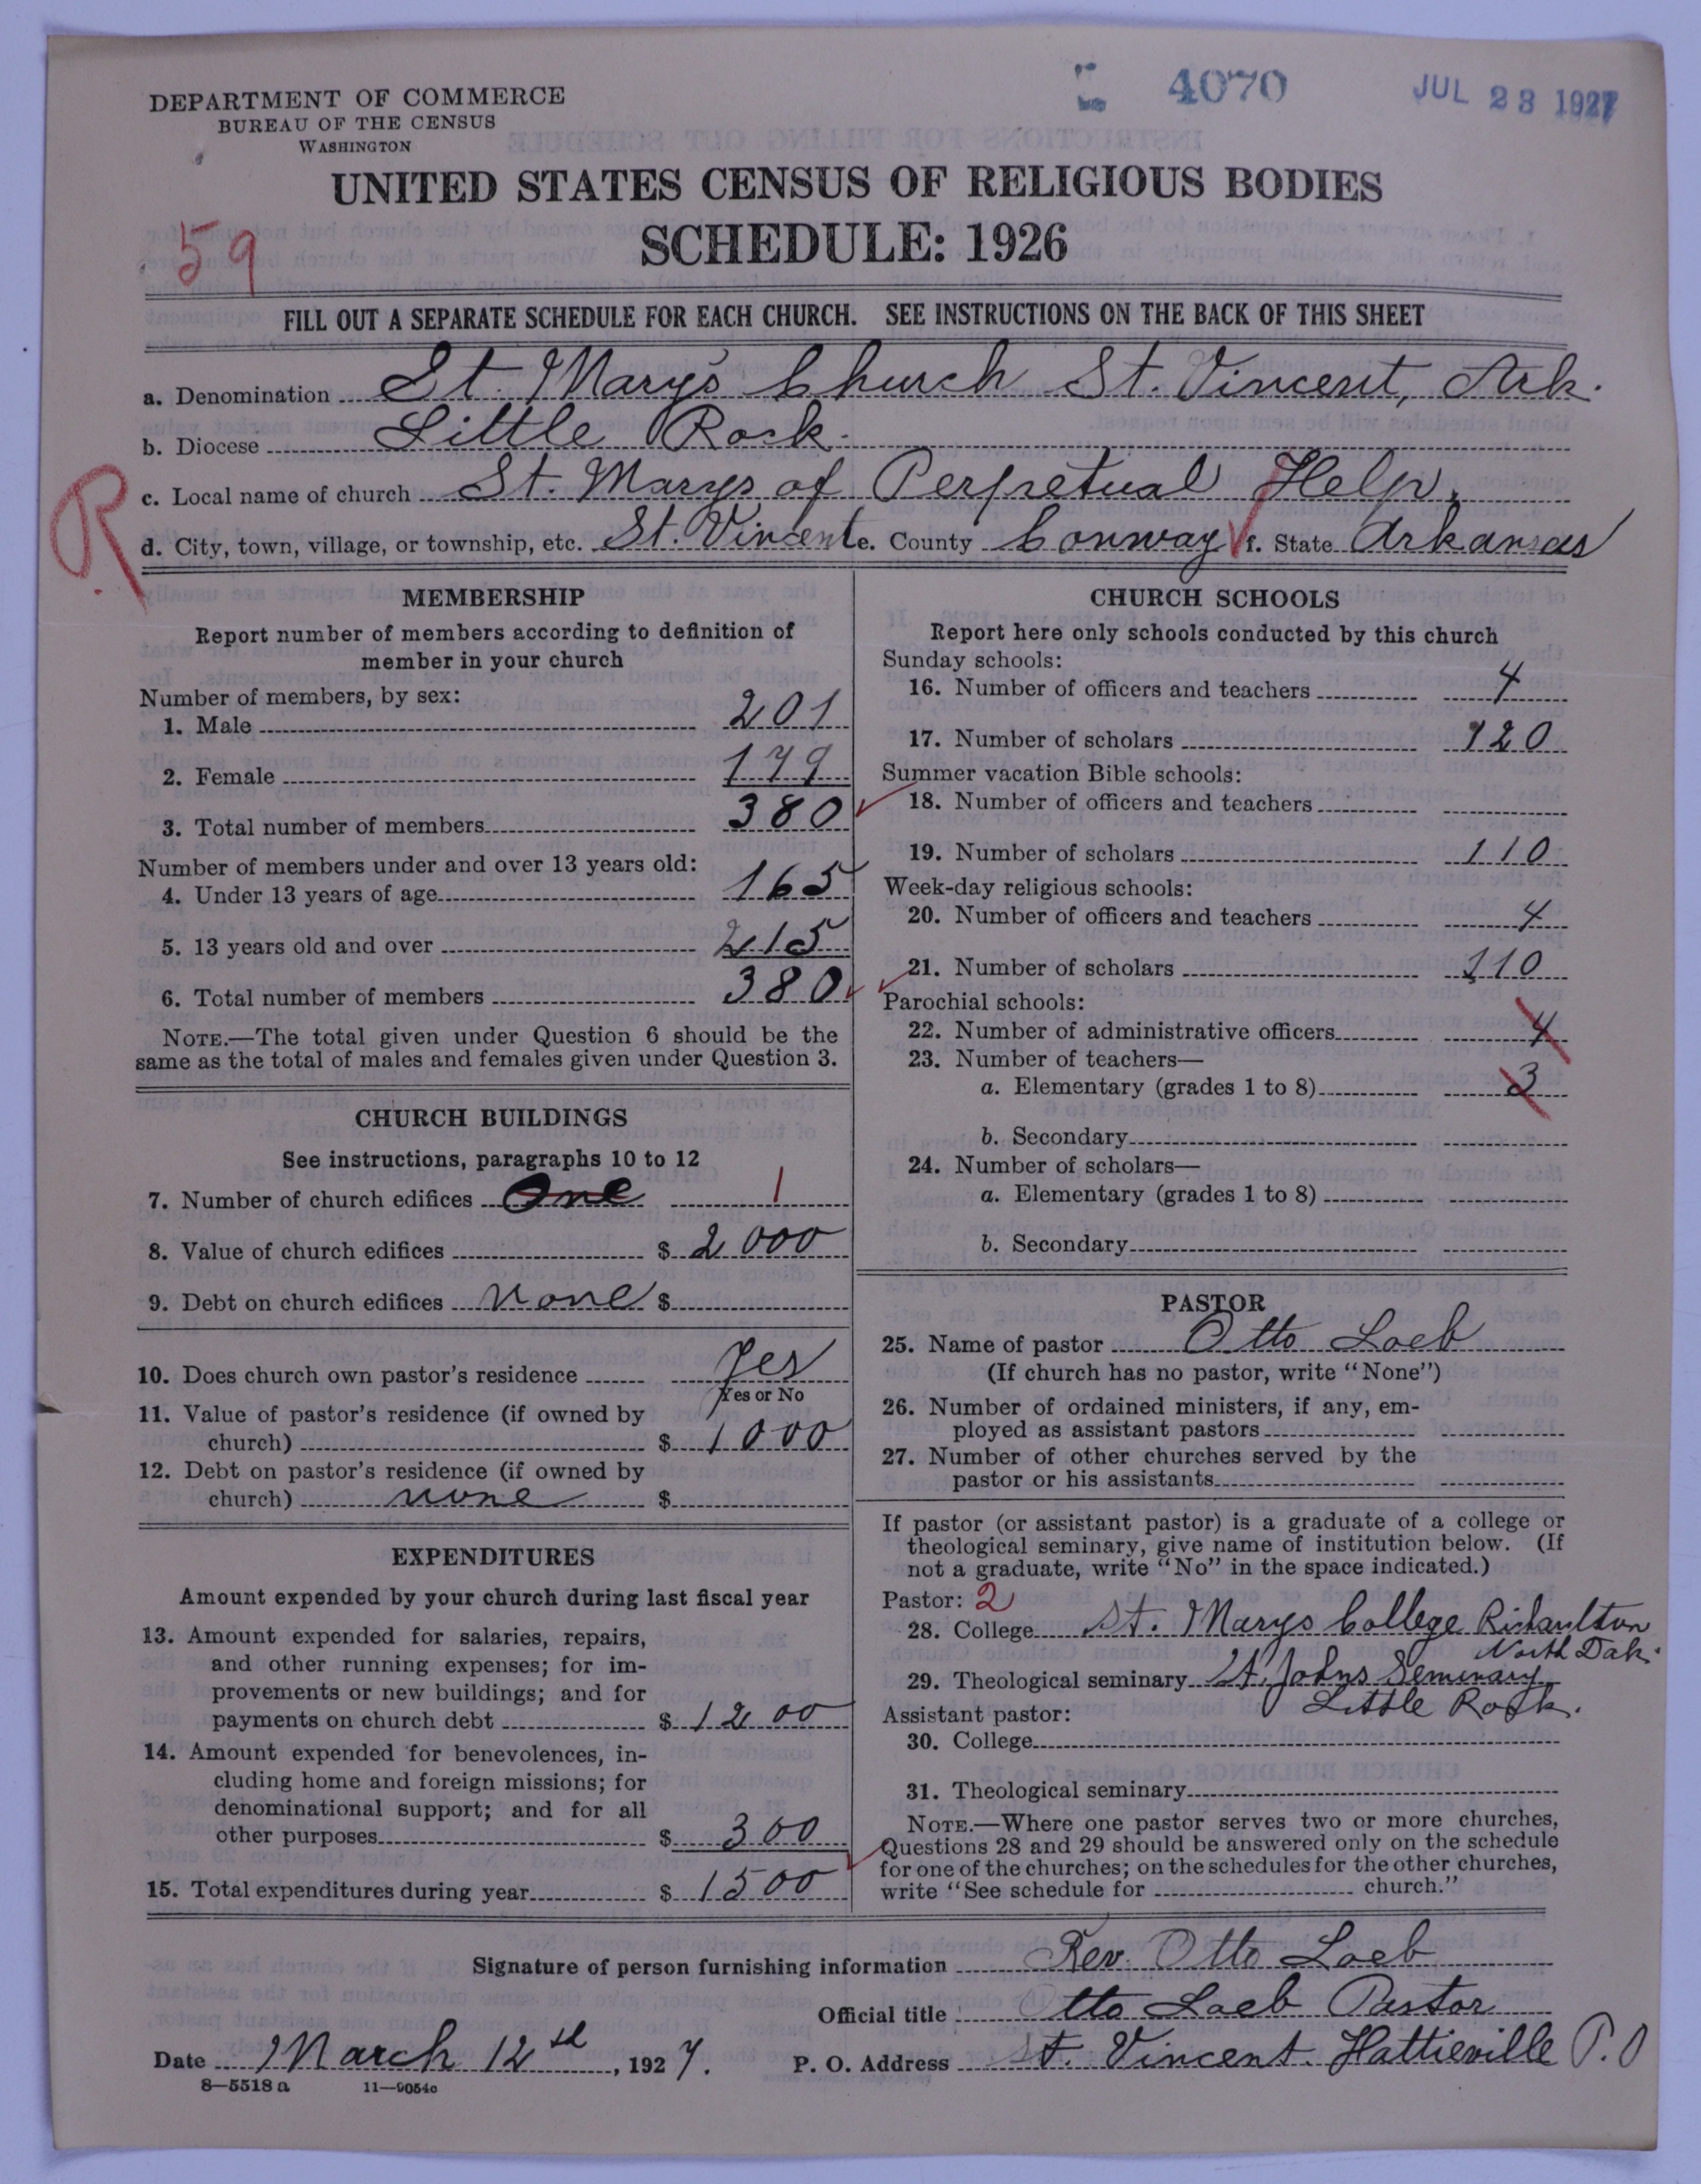 DEPARTMENT OF COMMERCE
BUREAU OF THE CENSUS
WASHINGTON
4070
JUL 23 1927
UNITED STATES CENSUS OF RELIGIOUS BODIES
SCHEDULE: 1926
59
FILL OUT A SEPARATE SCHEDULE FOR EACH CHURCH. SEE INSTRUCTIONS ON THE BACK OF THIS SHEET
a. Denomination St. Mary's Church St. Vincent, Ark.
b. Diocese Little Rock.
R
c. Local name of church St. Marys of Perpetual Help.
d. City, town, village, or township, etc. St. Vincent e. County Conway f. State Arkansas
MEMBERSHIP
Report number of members according to definition of
member in your church
Number of members, by sex:
1. Male 201
2. Female 179
3. Total number of members 380
Number of members under and over 13 years old:
4. Under 13 years of age 165
5. 13 years old and over 215
6. Total number of members 380
NOTE.—The total given under Question 6 should be the
same as the total of males and females given under Question 3.
CHURCH BUILDINGS
See instructions, paragraphs 10 to 12
7. Number of church edifices One 1
8. Value of church edifices $ 2000
9. Debt on church edifices None $
10. Does church own pastor's residence Yes
Yes or No
11. Value of pastor's residence (if owned by
church) $ 1000
12. Debt on pastor's residence (if owned by
church) none $
EXPENDITURES
Amount expended by your church during last fiscal year
13. Amount expended for salaries, repairs,
and other running expenses; for im-
provements or new buildings; and for
payments on church debt $ 1200
14. Amount expended for benevolences, in-
cluding home and foreign missions; for
denominational support; and for all
other purposes $ 300
15. Total expenditures during year $ 1500
CHURCH SCHOOLS
Report here only schools conducted by this church
Sunday schools:
16. Number of officers and teachers 4
17. Number of scholars 120
Summer vacation Bible schools:
18. Number of officers and teachers
19. Number of scholars 110
Week-day religious schools:
20. Number of officers and teachers 4
21. Number of scholars 110
Parochial schools:
22. Number of administrative officers 4
23. Number of teachers—
a. Elementary (grades 1 to 8) 3
b. Secondary
24. Number of scholars—
a. Elementary (grades 1 to 8)
b. Secondary
PASTOR
25. Name of pastor Otto Loeb
(If church has no pastor, write "None")
26. Number of ordained ministers, if any, em-
ployed as assistant pastors
27. Number of other churches served by the
pastor or his assistants
If pastor (or assistant pastor) is a graduate of a college or
theological seminary, give name of institution below. (If
not a graduate, write "No" in the space indicated.)
Pastor: 2
28. College St. Marys College Richardton
North Dak.
29. Theological seminary St. Johns Seminary
Little Rock.
Assistant pastor:
30. College
31. Theological seminary
NOTE.—Where one pastor serves two or more churches,
Questions 28 and 29 should be answered only on the schedule
for one of the churches; on the schedules for the other churches,
write "See schedule for church."
Signature of person furnishing information Rev. Otto Loeb
Official title Otto Loeb Pastor
Date March 12th, 1927. P. O. Address St. Vincent. Hattieville P.O
8—5518 a 11—9054c